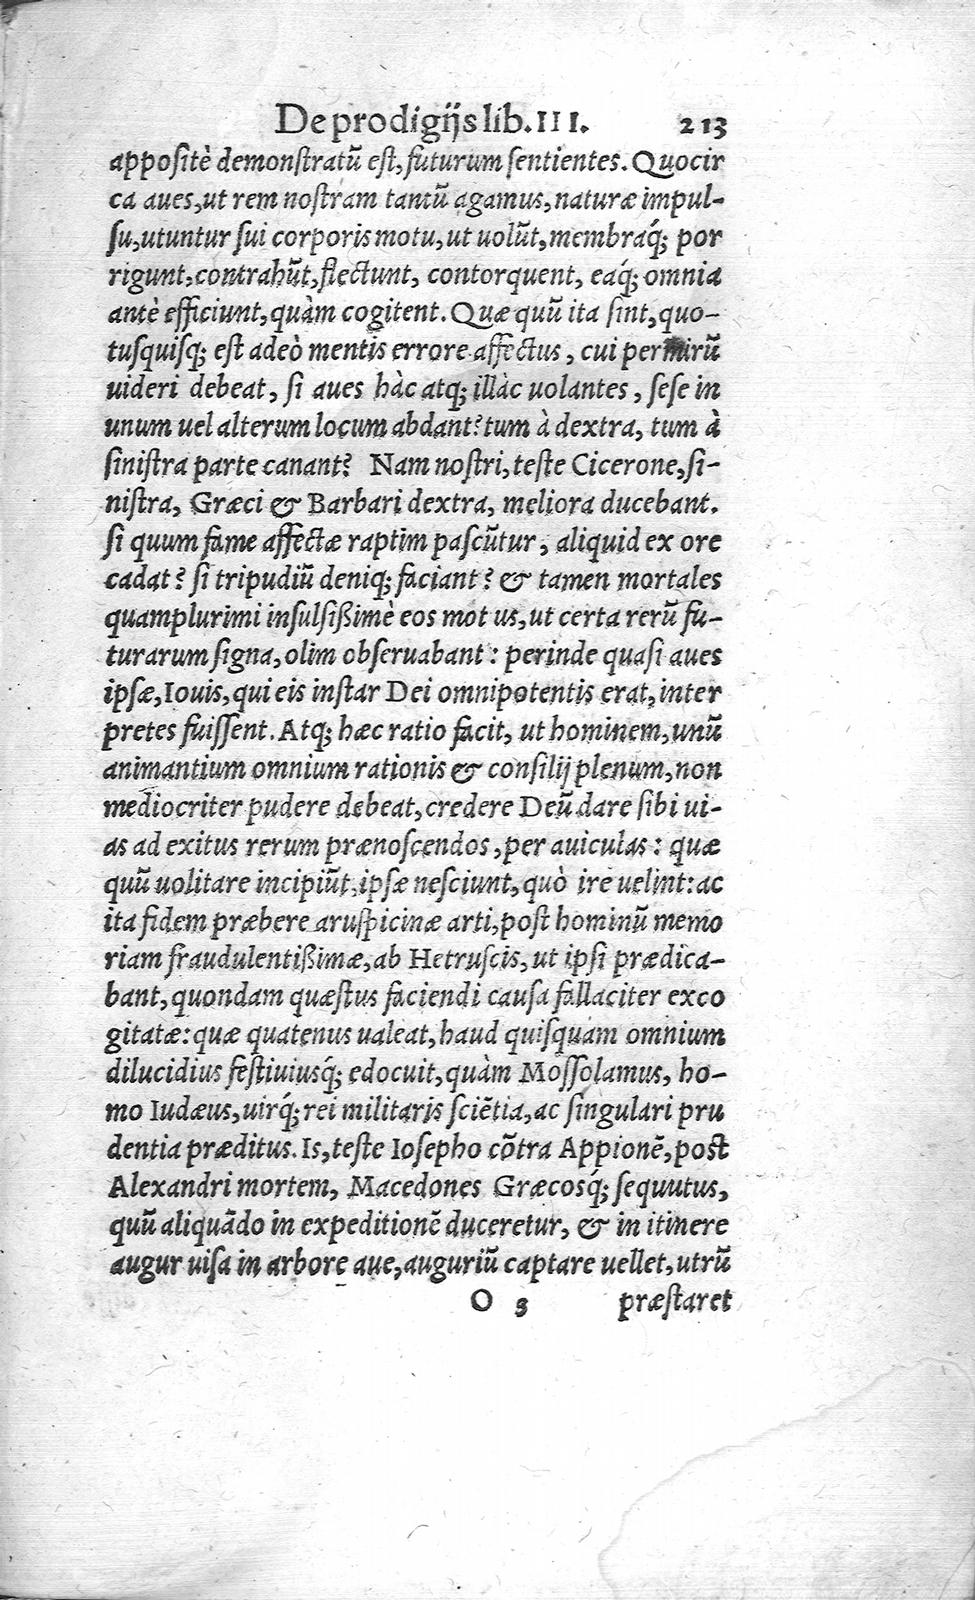 De prodigijs lib. III. 213
appositè demonstratũ est, futurum sentientes. Quocir
ca aues, ut rem nostram tantũ agamus, naturæ impul-
su, utuntur sui corporis motu, ut uolũt, membraq́; por
rigunt, contrahũt, flectunt, contorquent, eaq́; omnia
antè efficiunt, quàm cogitent. Quæ quũ ita sint, quo-
tusquisq; est adeò mentis errore affectus, cui per mirũ
uideri debeat, si aues hàc atq; illàc uolantes, sese in
unum uel alterum locum abdant? tum à dextra, tum à
sinistra parte canant? Nam nostri, teste Cicerone, si-
nistra, Græci & Barbari dextra, meliora ducebant.
si quum fame affectæ raptim pascũtur, aliquid ex ore
cadat? si tripudiũ deniq; faciant? & tamen mortales
quamplurimi insulsißimè eos motus, ut certa rerũ fu-
turarum signa, olim obseruabant: perinde quasi aues
ipsæ, Iouis, qui eis instar Dei omnipotentis erat, inter
pretes fuissent. Atq; hæc ratio facit, ut hominem, unũ
animantium omnium rationis & consilij plenum, non
mediocriter pudere debeat, credere Deũ dare sibi ui-
as ad exitus rerum prænoscendos, per auiculas: quæ
quũ uolitare incipiũt, ipsæ nesciunt, quò ire uelint: ac
ita fidem præbere aruspicinæ arti, post hominũ memo
riam fraudulentißimæ, ab Hetruscis, ut ipsi prædica-
bant, quondam quæstus faciendi causa fallaciter exco
gitatæ: quæ quatenus ualeat, haud quisquam omnium
dilucidius festiuiusq́; edocuit, quàm Mossolamus, ho-
mo Iudæus, uirq́; rei militaris sciẽtia, ac singulari pru
dentia præditus. Is, teste Iosepho cõtra Appionẽ, post
Alexandri mortem, Macedones Græcosq́; sequutus,
quũ aliquãdo in expeditionẽ duceretur, & in itinere
augur uisa in arbore aue, auguriũ captare uellet, utrũ
O 3 præstaret